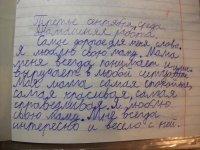 Третье октября, среда.
Домашняя работа.
Самые дорогие для меня слова.
Я люблю свою маму. Мама
меня всегда понимает и
выручает в любой ситуации.
Моя мама самая спокойная,
самая красивая, самая
справедливая. Я люблю
свою маму. Мне всегда
интересно и весело с ней.